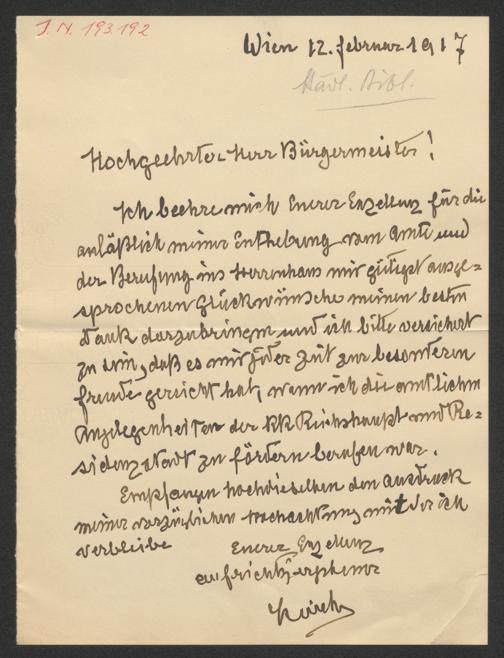 J. N. 193.192
Wien 12. februar 1917
Städt. Bibl.
Hochgeehrter Herr Bürgermeister!
Ich beehre mich Euerer Exzellenz für die
anläßlich meiner Enthebung vom Amte und
der Berufung ins Herrenhaus mir gütigst ausge=
sprochenen Glückwünsche meinen besten
Dank darzubringen und ich bitte versichert
zu sein, daß es mir jeder Zeit zur besonderen
freude gereicht hat, wenn ich die amtlichen
Angelegenheiten der KK Reichshaupt und Re=
sidenzstadt zu fördern berufen war.
Empfangen hochdieselben den Ausdruck
meiner vorzüglichen Hochachtung mit der ich
verbleibe
Euerer Exzellenz
aufrichtig ergebener